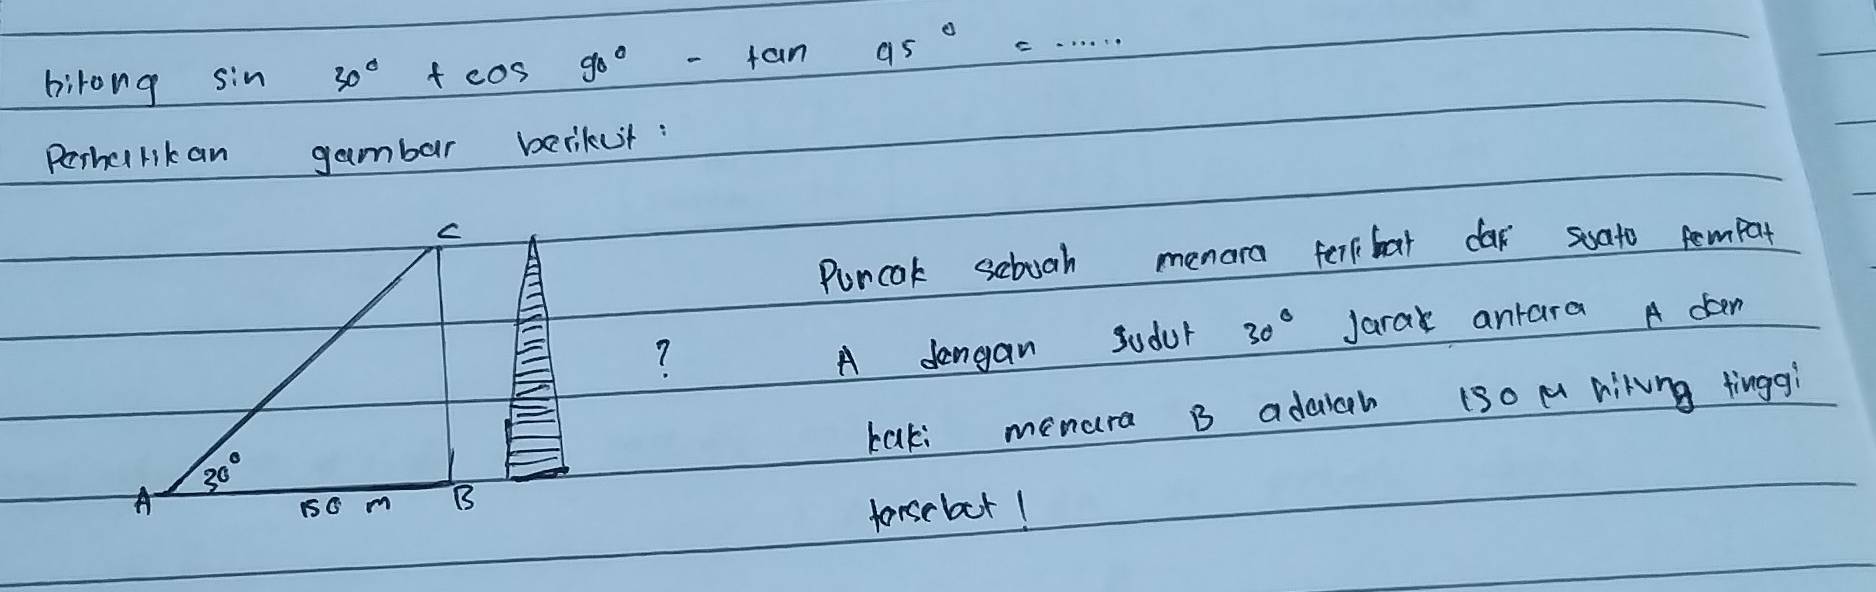 hitong sin 30° + cos 90° - tan 45° = ......
Perhatikan gambar berikut :
C
Puncak sebuah menara terlihat dari suato tempat
? A dengan sudut 30° Jarak antara A dan
kaki menara B adalah 150 M hitung tinggi
30°
A 150 m B
tersebut !